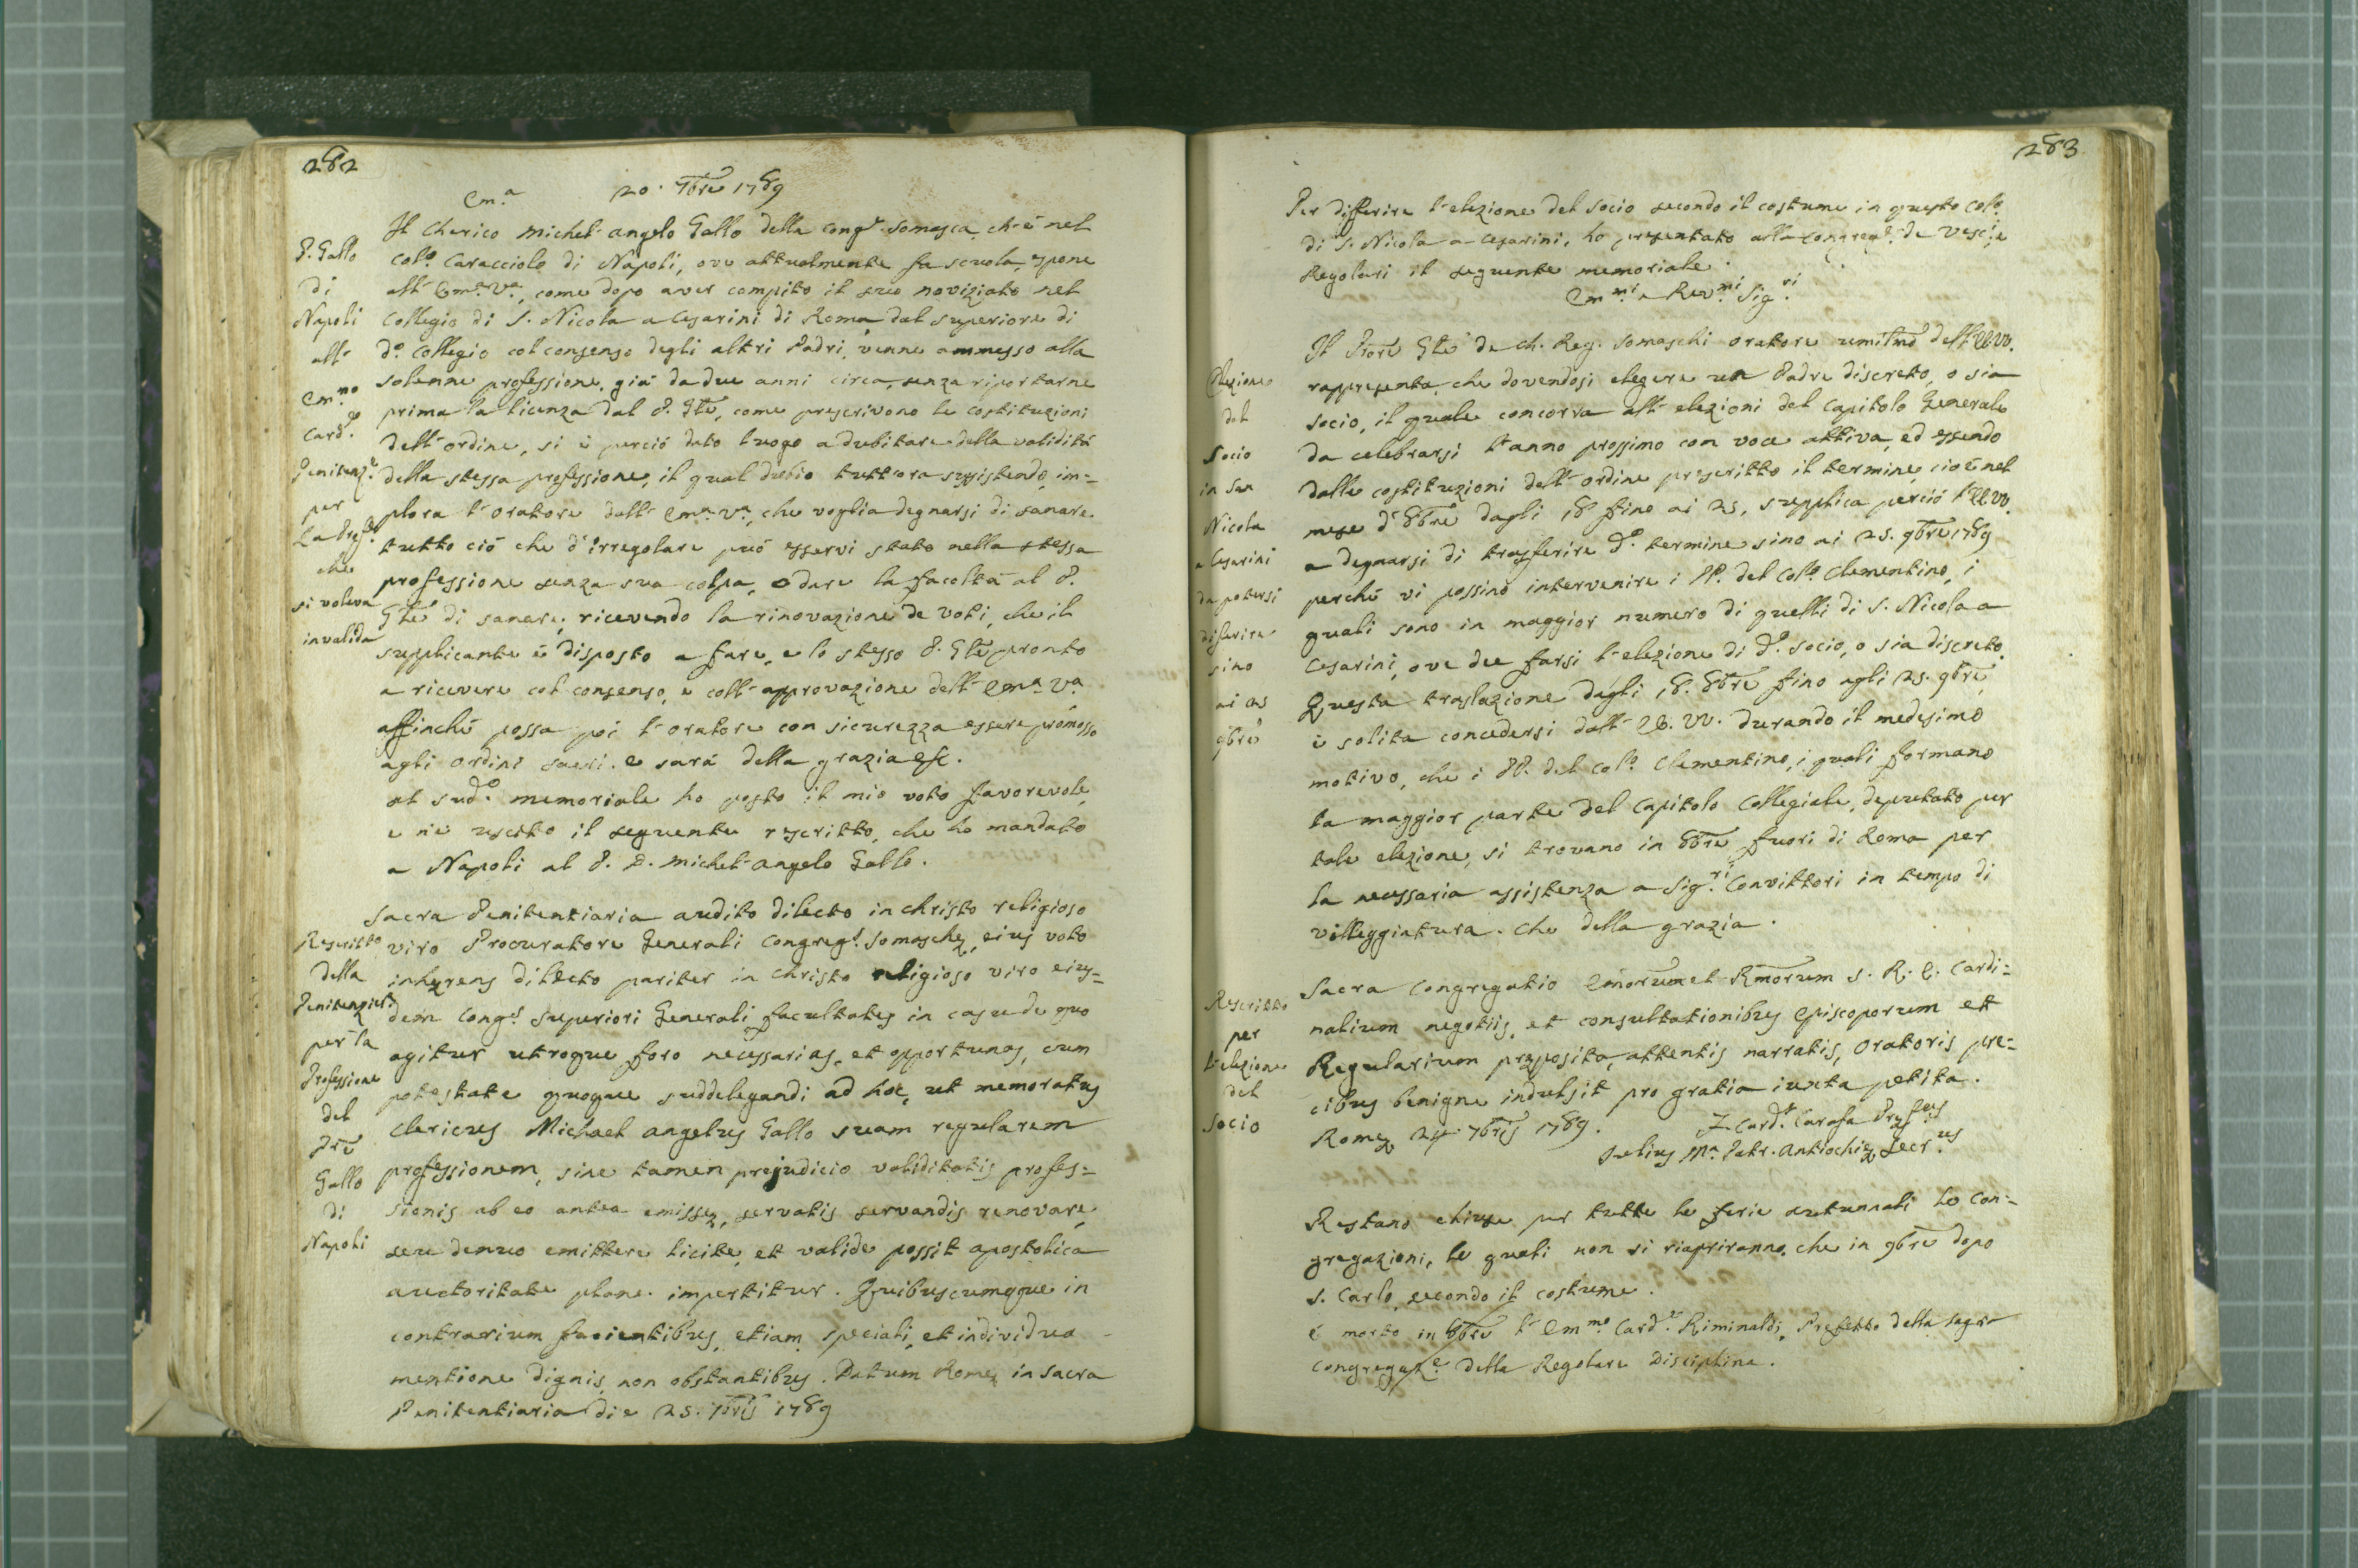 282
20. 7bre 1789
Em.a
Il Cherico Michel-angelo Gallo della Congne Somasca, ch-è nel
Colo. Caracciolo di Napoli, ove attualmente fa scuola, espone
all-Emza. Va., come dopo aver compito il suo noviziato nel
Collegio di S. Nicola a Cesarini di Roma, dal superiore di
do. Collegio col consenso degli altri Padri, venne ammesso alla
solenne professione, già da due anni circa, senza riportarne
prima la licenza dal P. Gle, come prescrivono le costituzioni
dell-ordine, si è perciò dato luogo a dubitare della validità
della stessa professione, il qual dubio tuttora sussistendo, im=
plora l-oratore dall-Emza. Va., che voglia degnarsi di sanare
tutto ciò che d'irregolare può esservi stato nella stessa
professione senza sua colpa, o dare la facoltà al P.
Gle di sanare, ricevendo la rinovazione de voti, che il
supplicante è disposto a fare, e lo stesso P. Gle pronto
a ricevere col consenso, e coll-approvazione dell-Emza. Va.
affinché possa poi l-oratore con sicurezza essere promosso
agli ordini sacri. e sarà della grazia &c.
al sudo. memoriale ho posto il mio voto favorevole,
e n'è uscito il seguente rescritto, che ho mandato
a Napoli al P. D. Michel-angelo Gallo.
P. Gallo
di
Napoli
all-
Emmo
Card.e
Penitenz.e
per
la Profne
che
si voleva
invalida
Sacra Penitentiaria audito dilecto in christo religioso
viro Procuratore Generali Congregs. Somaschę, eius voto
inhęrens dilecto pariter in christo religioso viro eius=
dem Congs. Superiori Generali facultates in casu de quo
agitur utroque foro necessarias, et opportunas, cum
potestate quoque suddelegandi ad hoc, ut memoratus
Clericus Michael angelus Gallo suam regularem
professionem, sine tamen prejudicio validitatis profes=
sionis ab eo antea emissę, servatis servandis renovare,
seu denuo emittere licite, et valide possit apostolica
auctoritate plane impertitur. Quibuscumque in
contrarium facientibus, etiam speciali, et individua
mentione dignis, non obstantibus. Datum Romę in Sacra
Penitentiaria die 25. 7bris 1789
Rescritto
della
Penitenziera
per la
Professione
del
Pre
Gallo
di
Napoli
283
Per differire l-elezione del socio secondo il costume in questo Colo.
di S. Nicola a Cesarini, ho presentato alla Congregne. de Vesc.i, e
Regolari il seguente memoriale.
Emmi. e Revmi. Sigri.
Il Prore Gle de Ch. Reg. Somaschi oratore umilmo dell'EE.VV.
rappresenta, che dovendosi elegere un Padre discreto, o sia
socio, il quale concorra all-elezioni del Capitolo Generale
da celebrarsi l'anno prossimo con voce attiva, ed essendo
dalle costituzioni dell-ordine prescritto il termine, cioè nel
mese d'8bre dagli 18 fino ai 25, supplica perciò l'EE.VV.
a degnarsi di trasferire do. termine sino ai 25. 9bre 1789
perché vi possino intervenire i PP. del Colo. Clementino, i
quali sono in maggior numero di quelli di S. Nicola a
Cesarini, ove dee farsi l-elezione di do. socio, o sia discreto.
Questa traslazione dagli 18. 8bre fino agli 25. 9bre,
è solita concedersi dall-EE. VV. durando il medesimo
motivo, che i PP. del Colo. Clementino, i quali formano
la maggior parte del Capitolo Collegiale, deputato per
tale elezione, si trovano in 8bre fuori di Roma per
la necessaria assistenza a Sigri. Convittori in tempo di
villeggiatura. Che della grazia.
Elezione
del
Socio
in San
Nicola
a Cesarini
da potersi
diferire
sino
ai 25
9bre
Sacra Congregatio Emorum et Rmorum S. R. E. Cardi=
nalium negotiis, et consultationibus Episcoporum et
Regularium pręposita, attentis narratis, Oratoris pre=
cibus benigne indulsit pro gratia iuxta petita.
Romę 24. 7bris 1789.
F. Card. Carafa Pręfus
Julius Ma. Patr. Antiochię Secrus.
Rescritto
per
l'elezione
del
Socio
Restano chiuse per tutte le ferie autunnali le Con=
gregazioni, le quali non si riapriranno, che in 9bre dopo
S. Carlo, secondo il costume.
è morto in 8bre l'Emmo. Card.e Riminaldi, Prefetto della Sagra
Congregaze. della Regolare Disciplina.